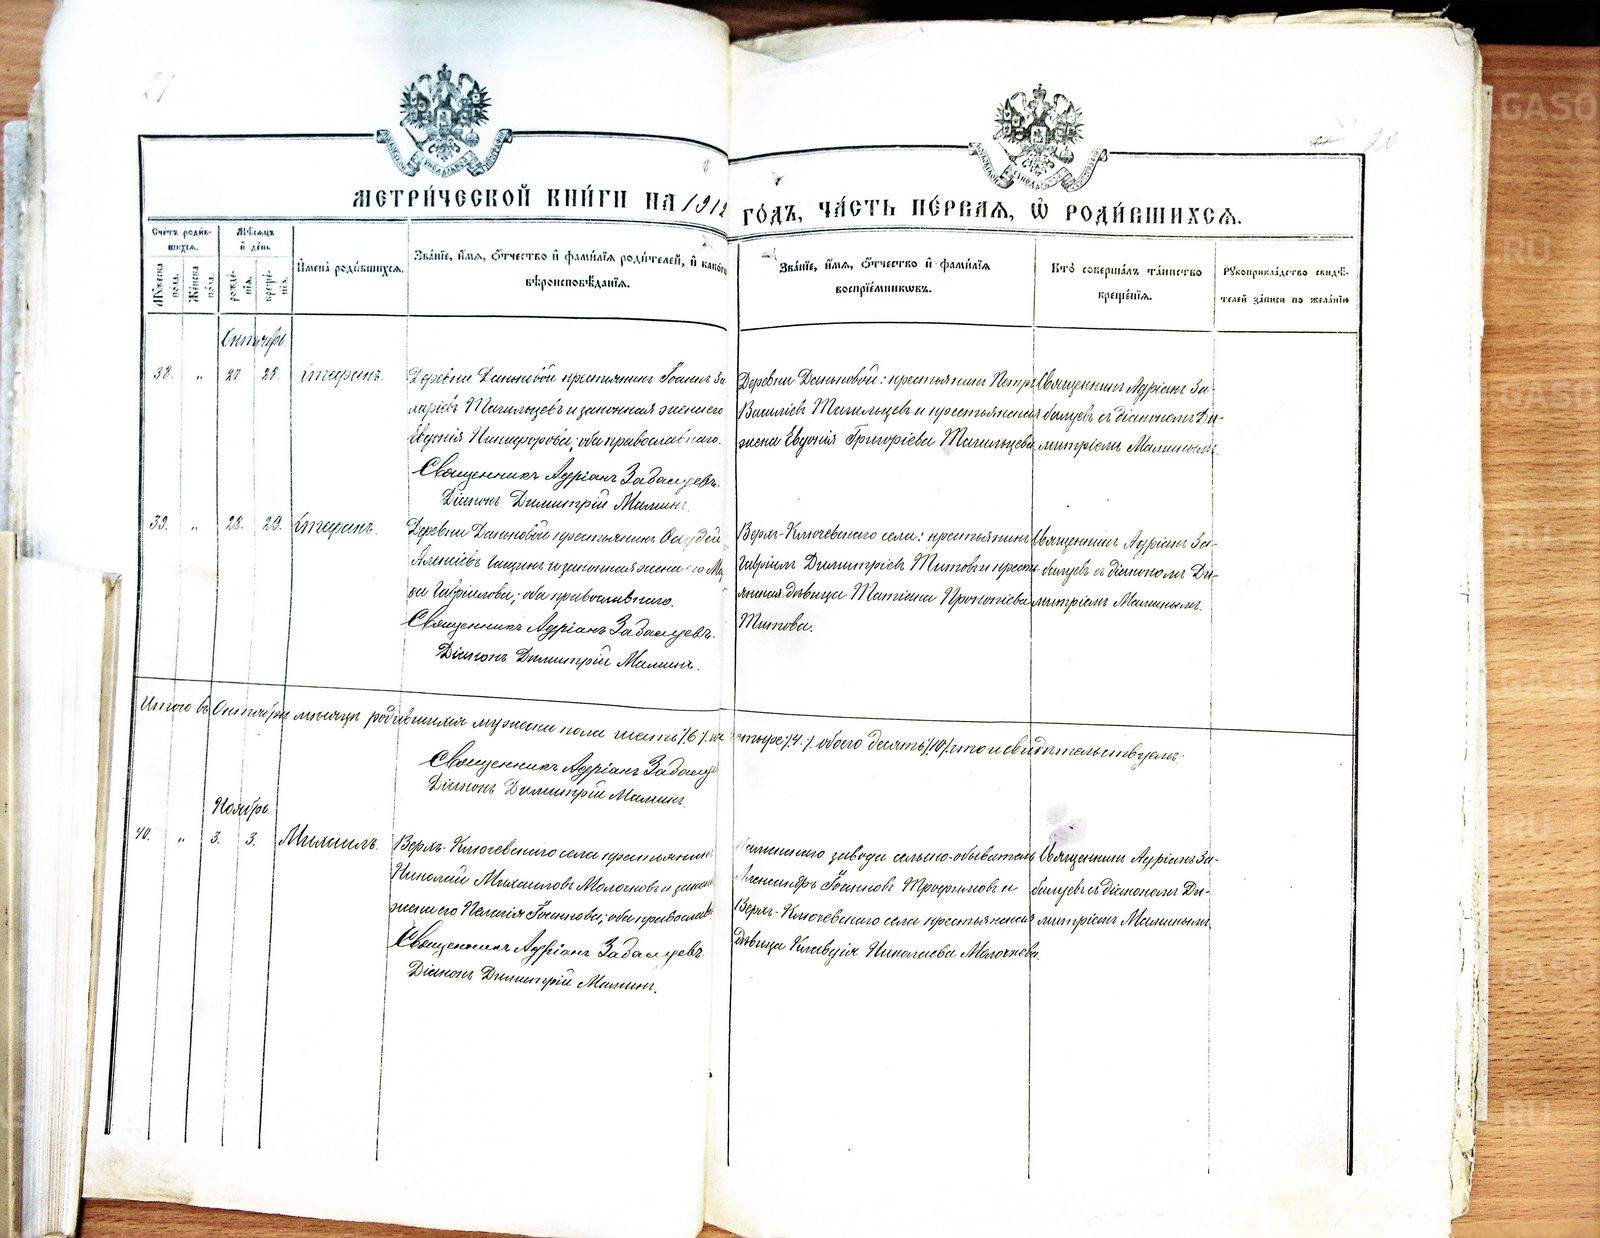 21
20
МЕТРИ́ЧЕСКОЙ КНИ́ГИ НА 1912
ГО́ДЪ, ЧА́СТЬ ПЕ́РВАЯ, Ѡ РОДИ́ВШИХСЯ.
Сче́тъ роди́в-
шихся.
Му́жеска по́ла.
Же́нска по́ла.
Мѣ́сяцъ
и де́нь
рожде́-
нія.
креще́-
нія.
Имена̀ роди́вшихся.
Зва́ніе, и́мя, о́тчество и фами́лія роди́телей, и како́гѡ
вѣроисповѣ́данія.
Зва́ніе, и́мя, о́тчество и фами́лія
воспріе́мникѡвъ.
Кто̀ соверша́лъ та́инство
креще́нія.
Рукоприкла́дство свидѣ́-
телей за́писи по жела́нію
Октябрь
38. „ 27. 28. Стефанъ.
Деревни Даньковой крестьянинъ Іоаннъ За-
харіевъ Тагильцевъ и законная жена его
Евдокія Никифорова; оба православнаго.
Священникъ Адріанъ Забалуевъ.
Діаконъ Димитрій Малинъ.
Деревни Даньковой: крестьянинъ Петръ
Василіевъ Тагильцевъ и крестьянская
жена Евдокія Григоріева Тагильцева
Священникъ Адріанъ За-
балуевъ съ діакономъ Ди-
митріемъ Малинымъ.
39. „ 28. 29. Стефанъ.
Деревни Даньковой крестьянинъ
Алексіевъ и законная жена его
Гавріилова; оба православнаго.
Священникъ Адріанъ Забалуевъ.
Діаконъ Димитрій Малинъ.
Верхъ-Ключевскаго села: крестьянинъ
Гавріилъ Димитріевъ Титовъ и кресть-
янская дѣвица Татіана Прокопіева
Титова.
Священникъ Адріанъ За-
балуевъ съ діакономъ Ди-
митріемъ Малинымъ.
Итого въ Октябрѣ мѣсяцѣ родившихся мужеска пола шесть /6/ четыре /4/ обоего десять /10/ что и свидѣтельствуемъ.
Священникъ Адріанъ Забалуе
Діаконъ Димитрій Малинъ
Ноябрь.
40. „ 3. 3. Михаилъ.
Верхъ-Ключевскаго села крестьянинъ
Николай Михаиловъ Молочковъ и закон
жена его Пелагія Іоаннова; оба православ
Священникъ Адріанъ Забалуевъ.
Діаконъ Димитрій Малинъ.
Каменскаго завода сельско-обыватель
Александръ Іоанновъ Трофимовъ и
Верхъ-Ключевскаго села крестьянская
дѣвица Клавдія Николаева Молочкова.
Священникъ Адріанъ За-
балуевъ съ діакономъ Ди-
митріемъ Малинымъ.
GASO
.RU
GASO
.RU
GASO
.RU
GASO
.RU